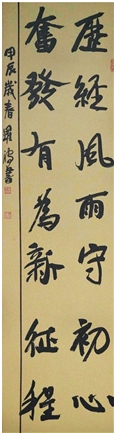 歷經風雨守初心
奮發有為新征程
甲辰歲春 羅鴻書